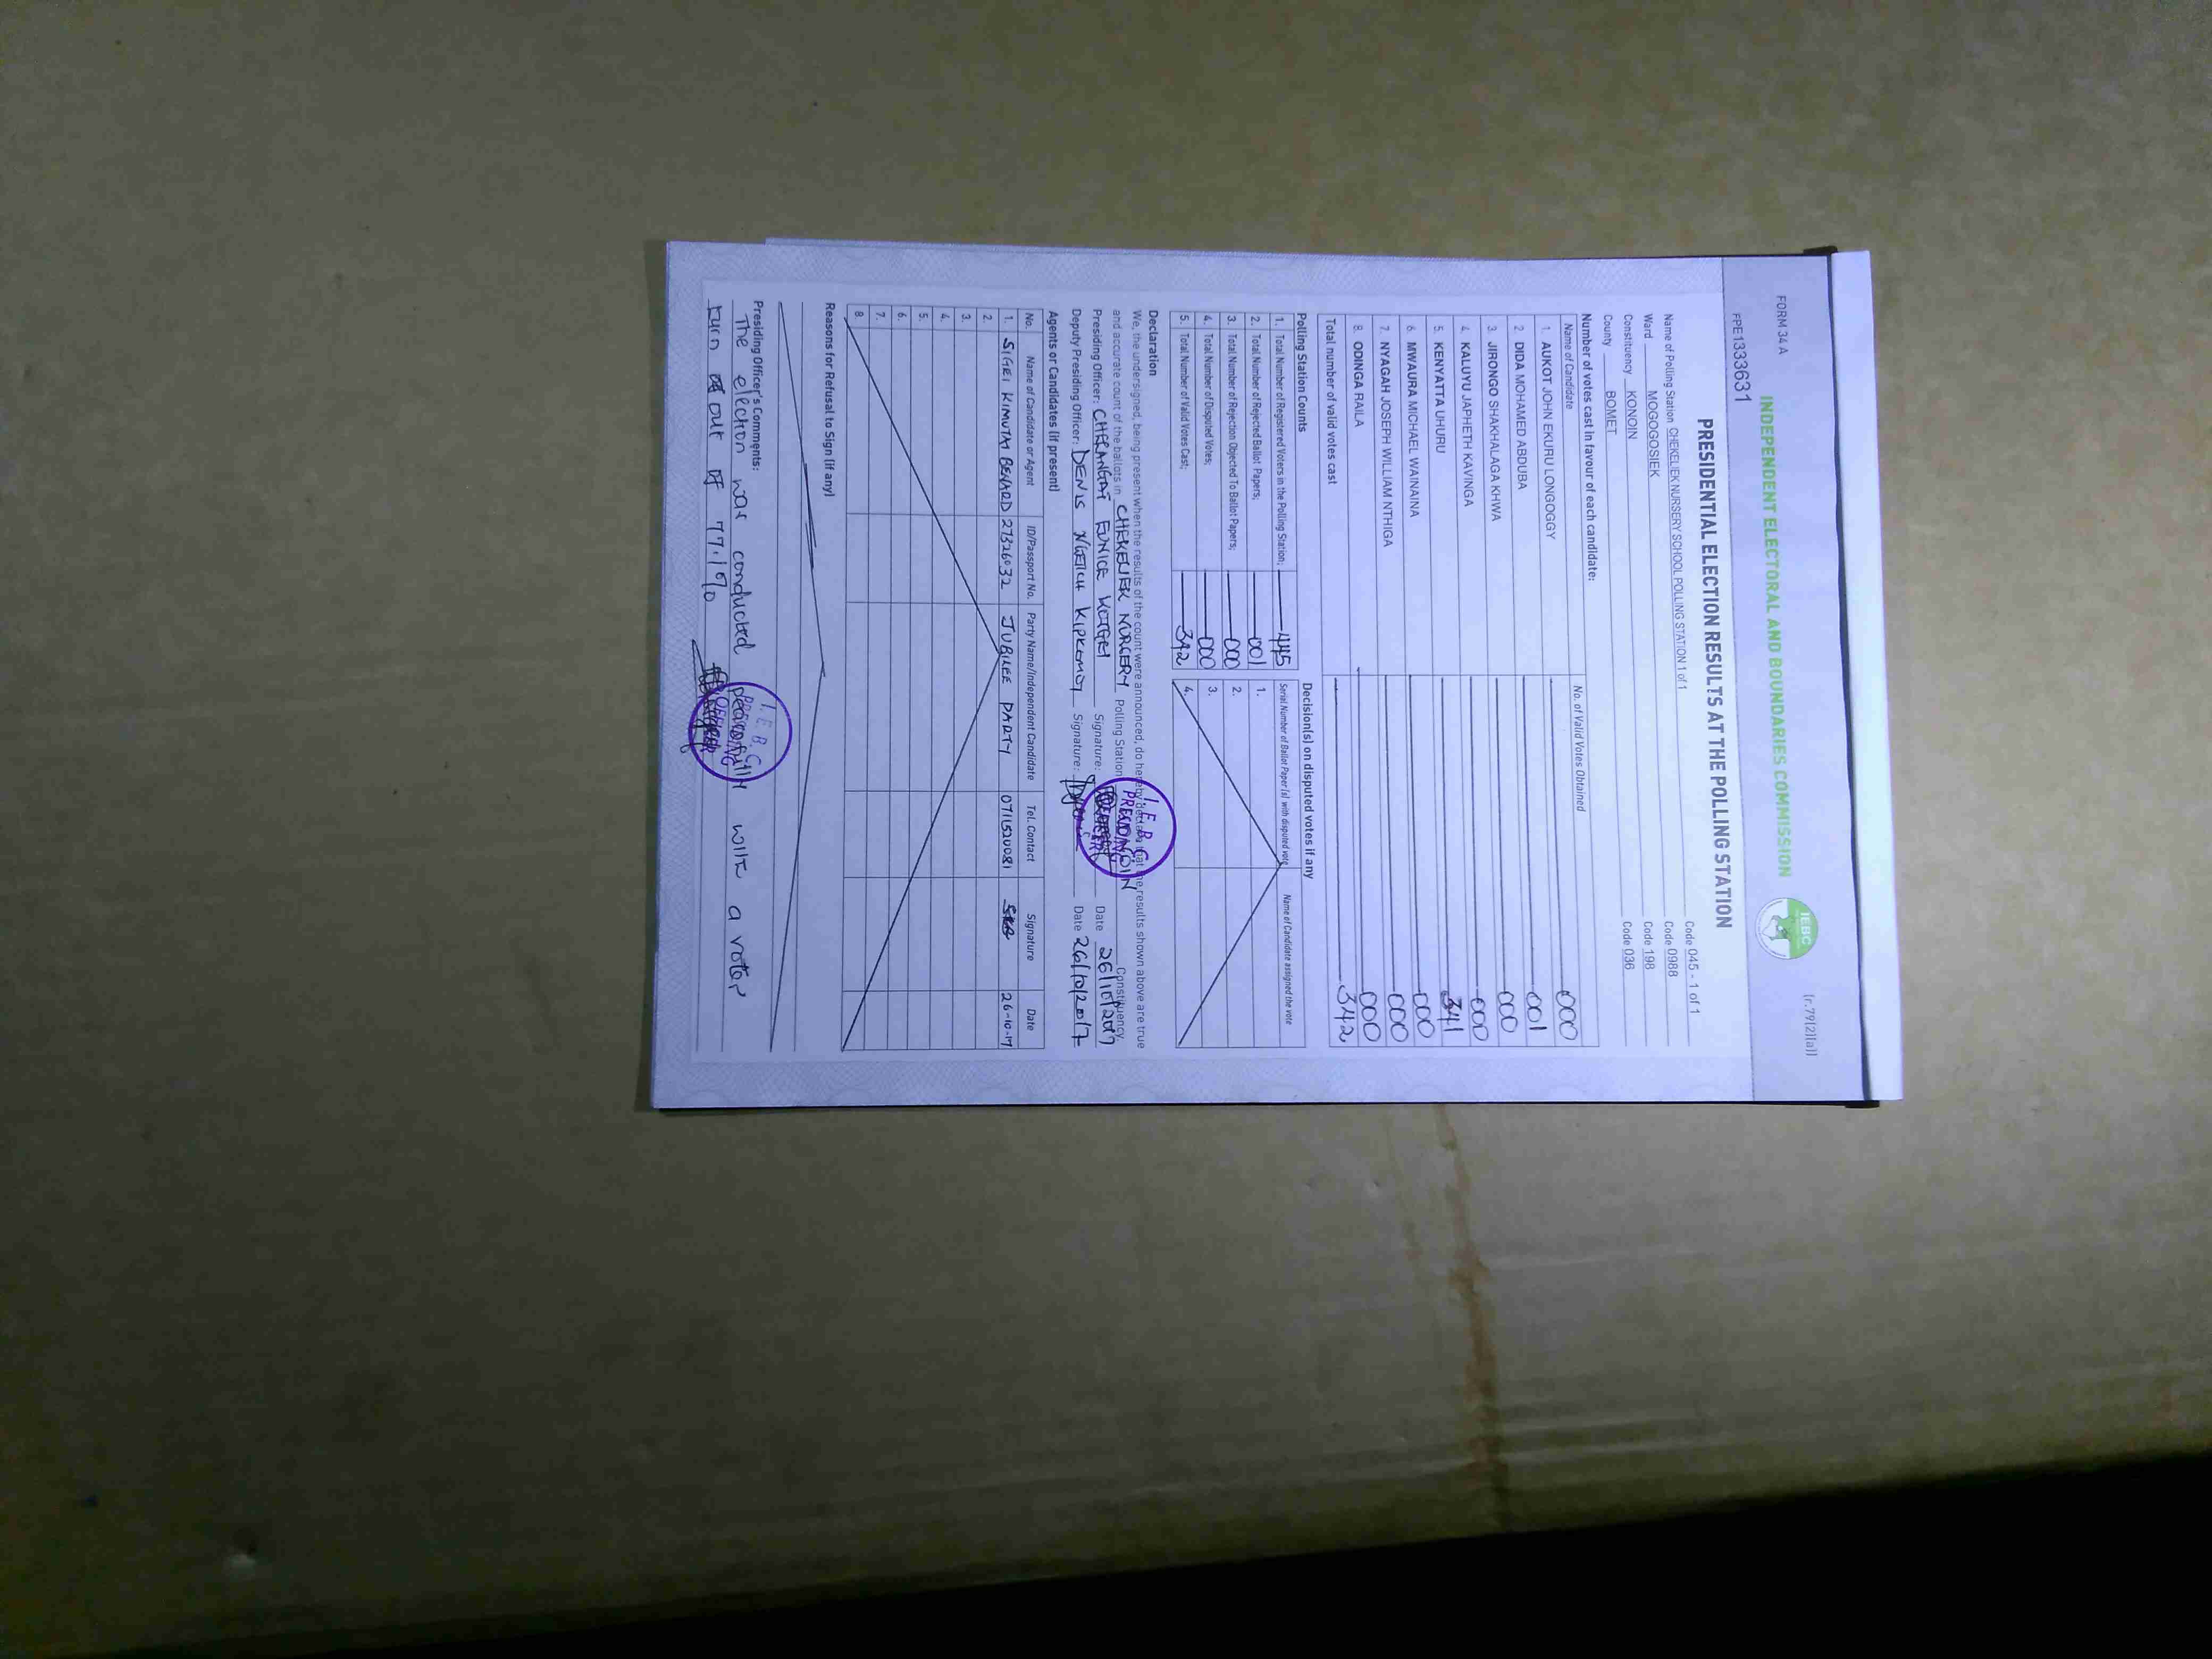 FORM 34 A
(r.79(2)(a))
INDEPENDENT ELECTORAL AND BOUNDARIES COMMISSION
IEBC
FPE1333631
PRESIDENTIAL ELECTION RESULTS AT THE POLLING STATION
Name of Polling Station CHEKELIEK NURSERY SCHOOL POLLING STATION 1 of 1 Code 045 - 1 of 1
Ward MOGOGOSIEK Code 0988
Constituency KONOIN Code 198
County BOMET Code 036
Number of votes cast in favour of each candidate:
Name of Candidate No. of Valid Votes Obtained
1. AUKOT JOHN EKURU LONGOGGY 000
2 DIDA MOHAMED ABDUBA 001
3. JIRONGO SHAKHALAGA KHWA 000
4. KALUYU JAPHETH KAVINGA 000
5. KENYATTA UHURU 341
6 MWAURA MICHAEL WAINAINA 000
7. NYAGAH JOSEPH WILLIAM NTHIGA 000
8. ODINGA RAILA 000
Total number of valid votes cast 342
Polling Station Counts
1. Total Number of Registered Voters in the Polling Station; 445
2. Total Number of Rejected Ballot Papers; 001
3. Total Number of Rejection Objected To Ballot Papers; 000
4. Total Number of Disputed Votes; 000
5. Total Number of Valid Votes Cast; 342
Decision(s) on disputed votes if any
Serial Number of Ballot Paper (s) with disputed vote Name of Candidate assigned the vote
1.
2.
3.
4.
Declaration
We, the undersigned, being present when the results of the count were announced, do hereby declare that the results shown above are true
and accurate count of the ballots in CHEKELIEK NURSERY Polling Station KONOIN Constituency.
Presiding Officer: CHERANGAT EUNICE KOTGEI Signature: Date 26/10/2017
Deputy Presiding Officer: DENIS NGETICH KIPKEMOI Signature: Date 26/10/2017
I. E. B. C.
PRESIDING
OFFICER
Agents or Candidates (if present)
No. Name of Candidate or Agent ID/Passport No. Party Name/Independent Candidate Tel. Contact Signature Date
1. SIGEI KIMUTAI BENARD 27326032 JUBILEE PARTY 0711520081 26-10-17
2.
3.
4.
5.
6.
7.
8.
Reasons for Refusal to Sign (if any)
Presiding Officer's Comments:
The election was conducted peacefully with a voter
turn out of 77.1%
I. E. B. C.
PRESIDING
OFFICER